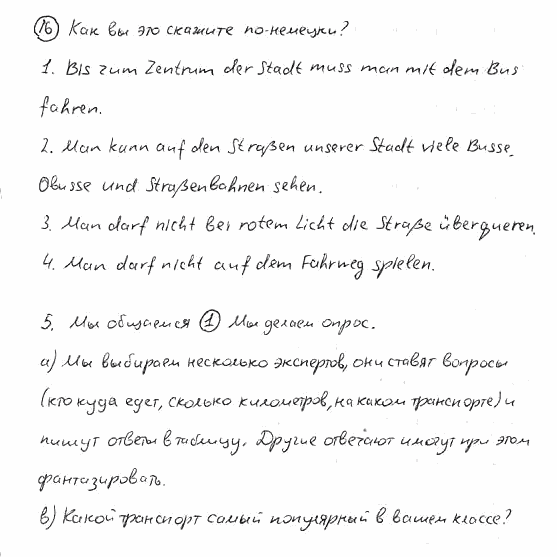 16 Как вы это скажите по-немецки?
1. Bis zum Zentrum der Stadt muss man mit dem Bus
fahren.
2. Man kann auf den Straßen unserer Stadt viele Busse,
Obusse und Straßenbahnen sehen.
3. Man darf nicht bei rotem Licht die Straße überqueren.
4. Man darf nicht auf dem Fahrweg spielen.
5. Мы общаемся 1 Мы делаем опрос.
а) Мы выбираем несколько экспертов, они ставят вопросы
(кто куда едет, сколько километров, на каком транспорте) и
пишут ответы в таблицу. Другие отвечают и могут при этом
фантазировать.
в) Какой транспорт самый популярный в вашем классе?